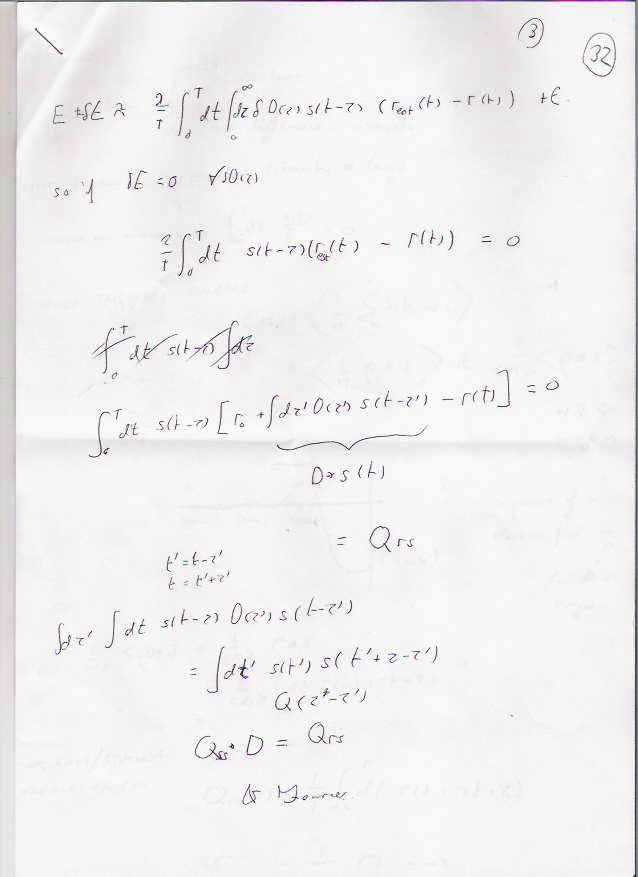 3
32
E + δE ≈ 2/T ∫₀ᵀ dt ∫₀^∞ dτ δD(τ) s(t-τ) (r_est(t) - r(t)) + E.
so if δE = 0 ∀δD(τ)
2/T ∫₀ᵀ dt s(t-τ)(r_est(t) - r(t)) = 0
∫₀ᵀ dt s(t-τ) ∫dτ
∫₀ᵀ dt s(t-τ) [r₀ + ∫dτ' D(τ') s(t-τ') - r(t)] = 0
D*s(t)
= Q_rs
t' = t-τ'
t = t'+τ'
∫dτ' ∫dt s(t-τ) D(τ') s(t-τ')
= ∫dt' s(t') s(t'+τ-τ')
Q(τ-τ')
Q_ss * D = Q_rs
Fourier